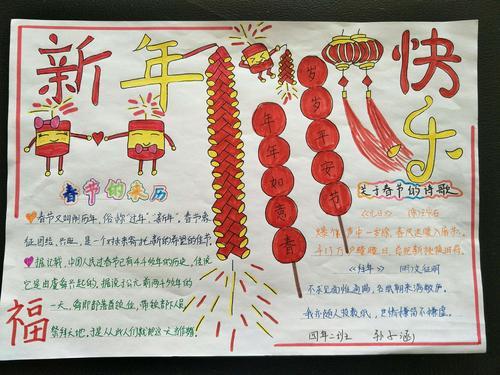 新年
快乐
岁岁平安节
年年如意春
春节的来历
春节又叫阴历年，俗称"过年"、
征团结、兴旺，是一个对未来寄托新的希望的佳节。
据记载，中国人民过春节已有4千多年的历史，
它是由虞舜兴起的。据说于公元前两千多年的
一天，舜即部落首领位，带领部下人员
祭拜天地。于是从此人们就把这一天作
福
关于春节的诗歌
《元日》
爆竹声中一岁除，春风送暖入屠苏。
千门万户曈曈日，总把新桃换旧符。
《拜年》 明 文征明
不求见面惟通谒，名纸朝来满敝庐。
我亦随人投数纸，世情嫌简不嫌虚。
四年二班 孙子涵